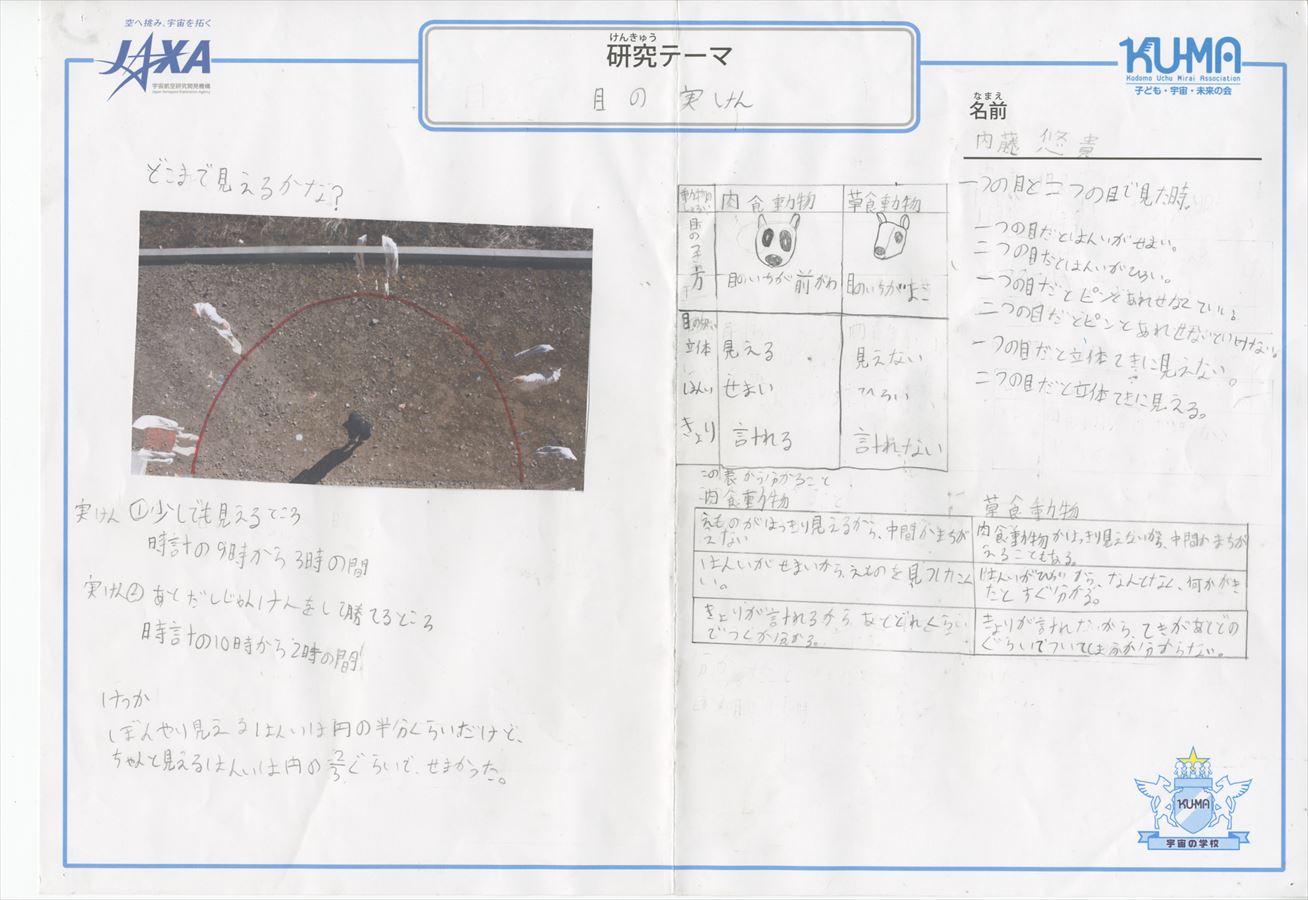 空へ挑み、宇宙を拓く
JAXA
宇宙航空研究開発機構
Japan Aerospace Exploration Agency
けんきゅう
研究テーマ
目の実けん
KU-MA
Kodomo Uchu Mirai Association
子ども・宇宙・未来の会
なまえ
名前
内藤 悠貴
どこまで見えるかな?
実けん ①少しでも見えるところ
時計の9時から3時の間
実けん② あとだしじゃんけんをして勝てるところ
時計の10時から2時の間
けっか
ぼんやり見えるはんいは円の半分くらいだけど、
ちゃんと見えるはんいは円の2/3ぐらいで、せまかった。
動物の 肉食動物 草食動物
目の
目のいちが前がわ 目のいちがよこ
立体 見える 見えない
はんい せまい ひろい
きょり 計れる 計れない
この表から分かること
肉食動物 草食動物
えものがはっきり見えるから、中間かまちが
えない
肉食動物がはっきり見えないから、中間かまちが
えることもある。
はんいがせまいから、えものを見つけにく
い。
はんいがひろいから、なんとなく、何かがき
たとすぐ分かる。
きょりが計れるから、あとどれくらい
でつくか分かる。
きょりが計れないから、てきがあとどの
ぐらいでついてしまうか分からない。
一つの目と二つの目で見た時。
一つの目だとはんいがせまい。
二つの目だとはんいがひろい。
一つの目だとピンとあわせなくていい。
二つの目だとピンとあわせないといけない。
一つの目だと立体てきに見えない。
二つの目だと立体てきに見える。
KU-MA
宇宙の学校